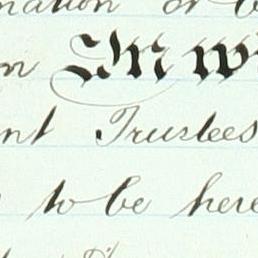 nation or
In wi
nt Trustees
to be here